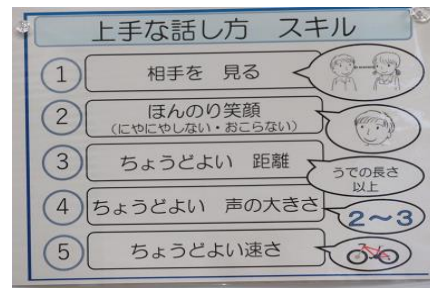 上手な話し方　スキル
1 相手を　見る
2 ほんのり笑顔
（にやにやしない・おこらない）
3 ちょうどよい　距離
うでの長さ
以上
4 ちょうどよい　声の大きさ
2～3
5 ちょうどよい速さ